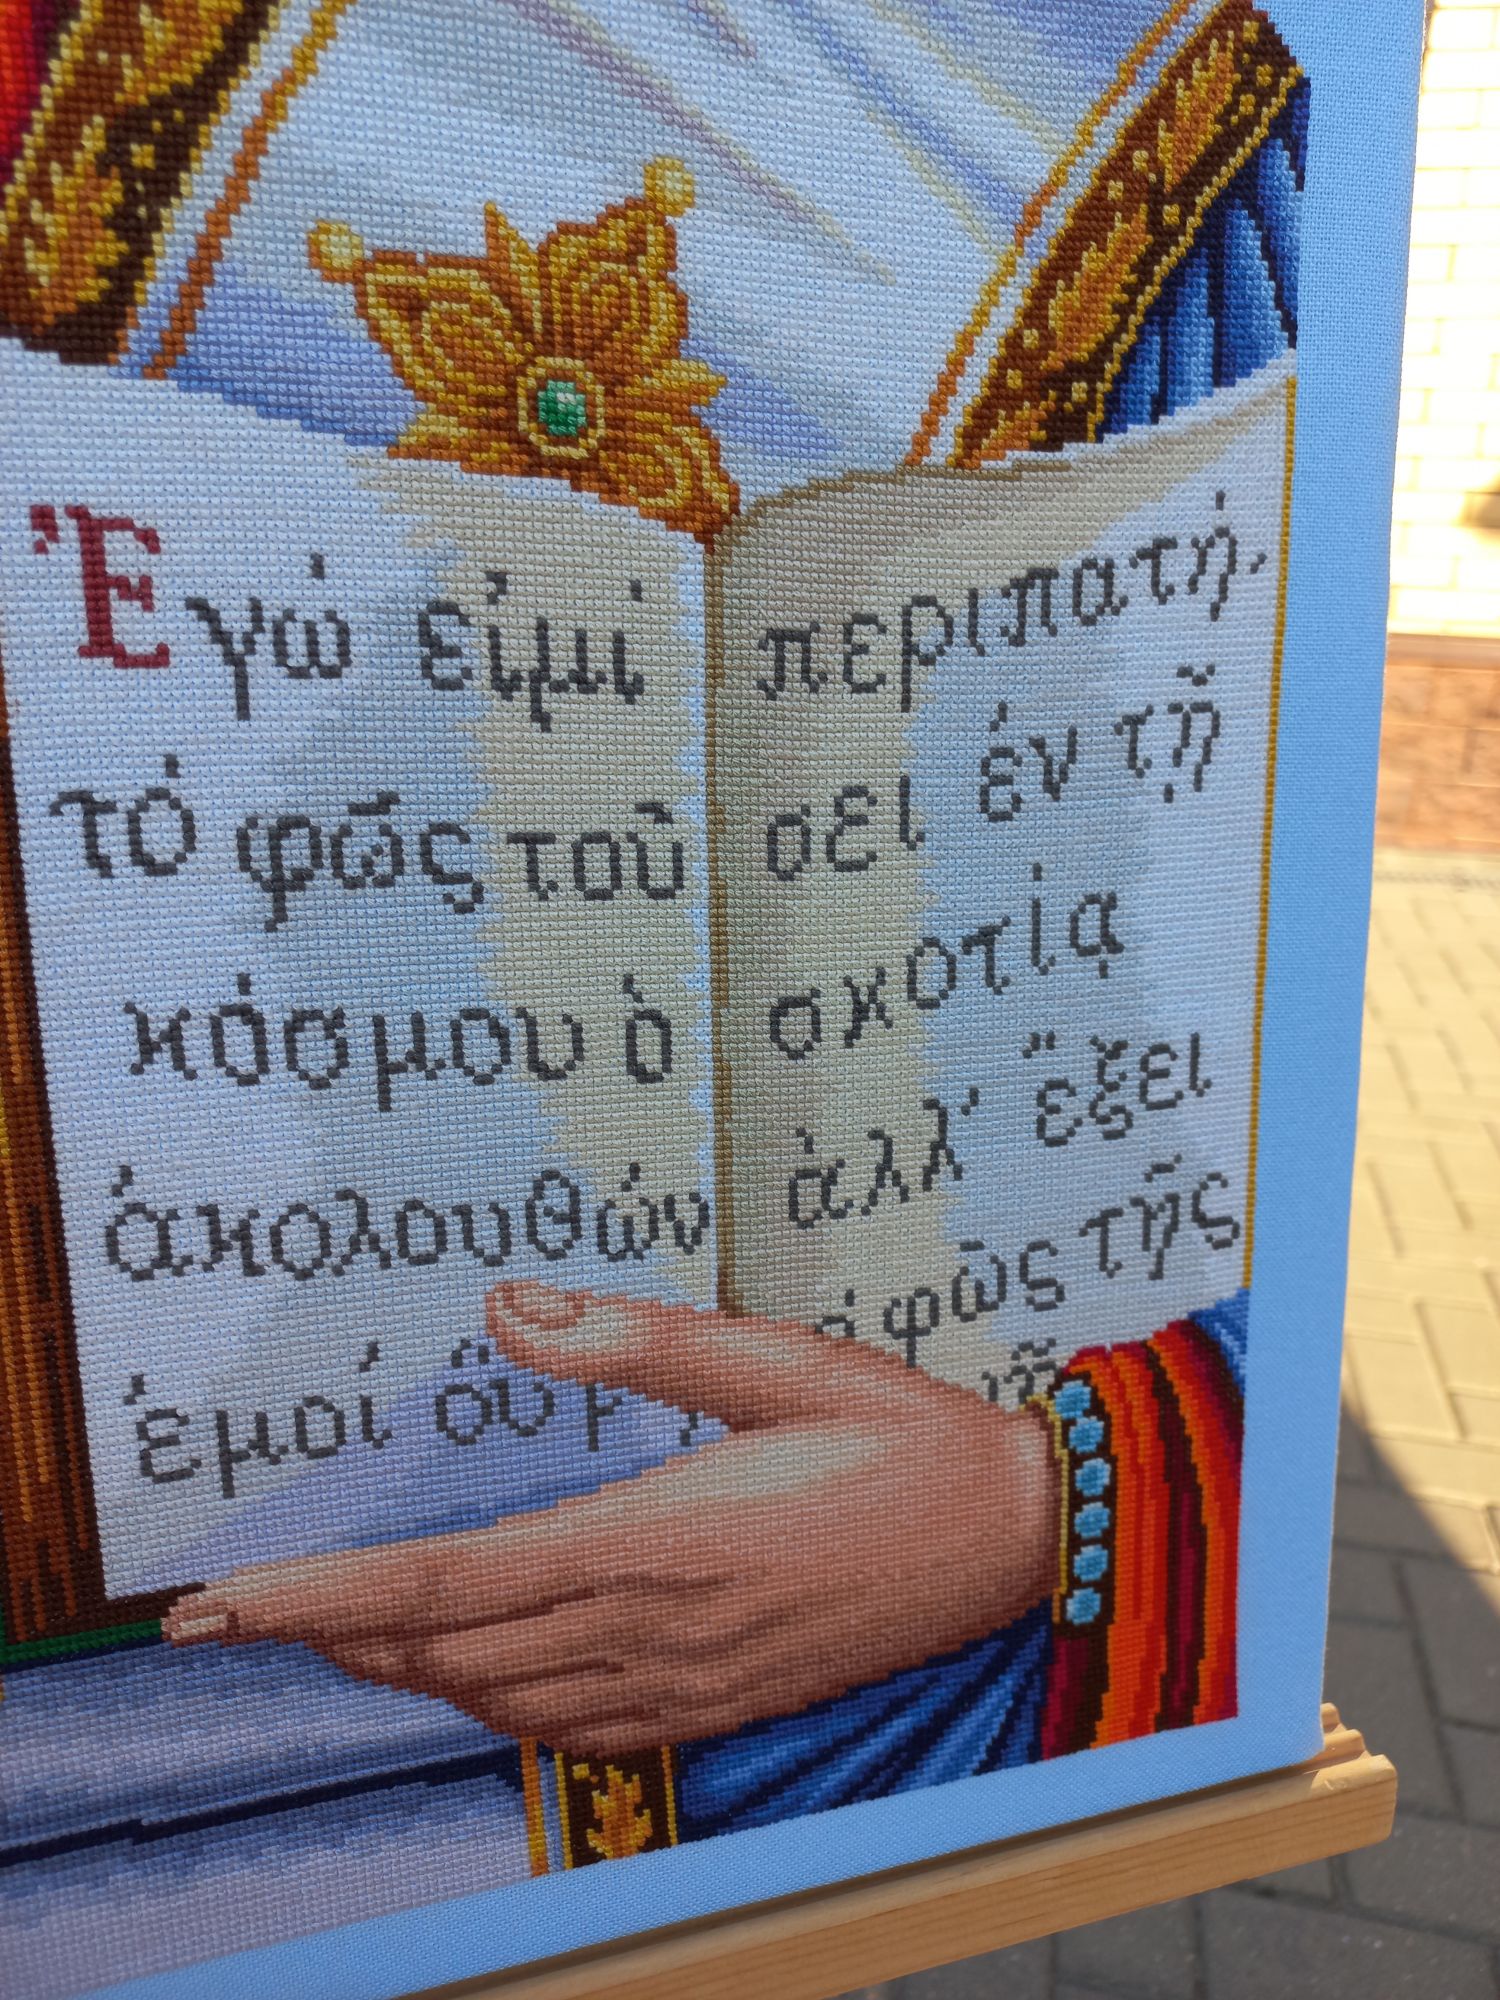 Ἐγώ εἰμί
τό φῶς τοῦ
κόσμου ὁ
ἀκολουθών
ἐμοί οὐ
περιπατή.
σει ἐν τῇ
σκοτίᾳ
ἀλλ' ἕξει
φῶς τῆς